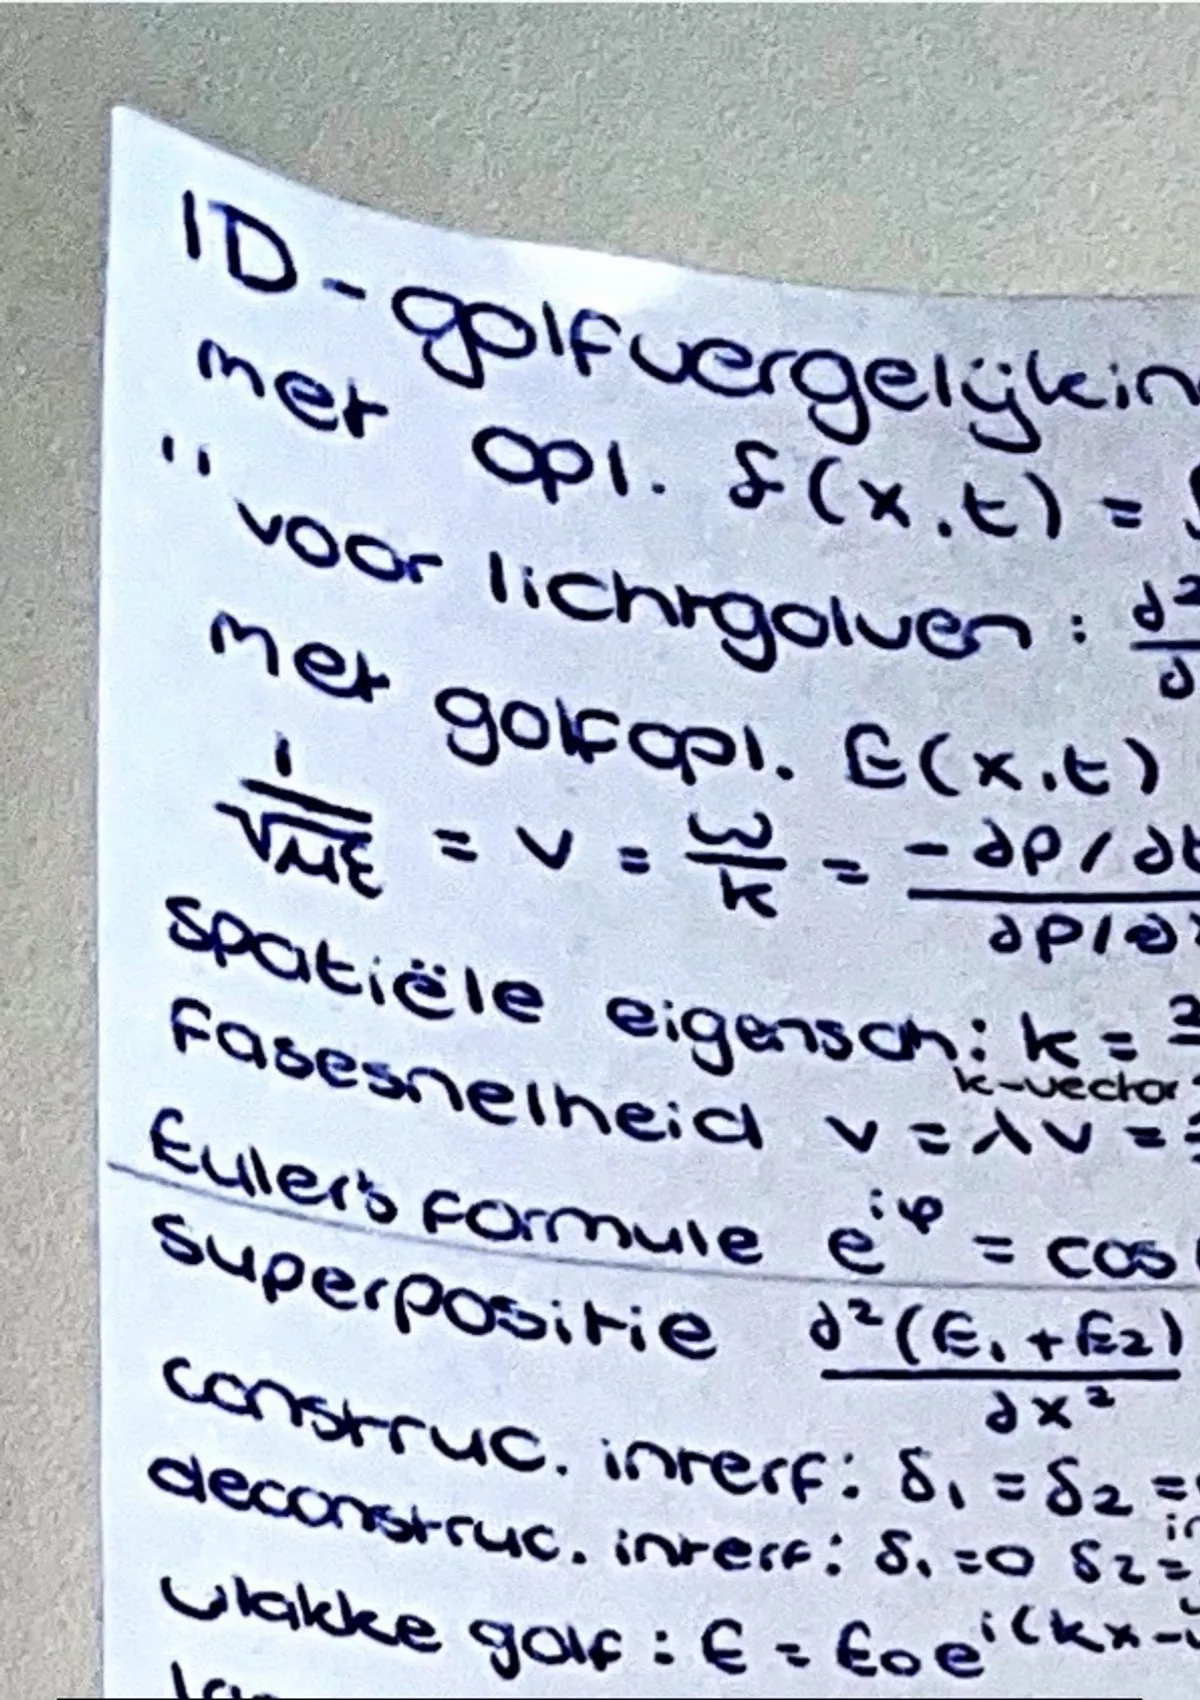 1D-golfvergelijkin
met opl. f(x,t) =
" voor lichtgolven: ∂²
∂
met golfopl. E(x,t)
1/√με = v = ω/k = -∂φ/∂t
∂φ/∂x
spatiële eigensch: k = 2
k-vector
fasesnelheid v = λν =
Euler's formule e^iφ = cos
superpositie ∂²(E₁+E₂)/∂x²
construc. interf: δ₁ = δ₂ =
deconstruc. interf: δ₁=0 δ₂=
vlakke golf: E = E₀e^i(kx-